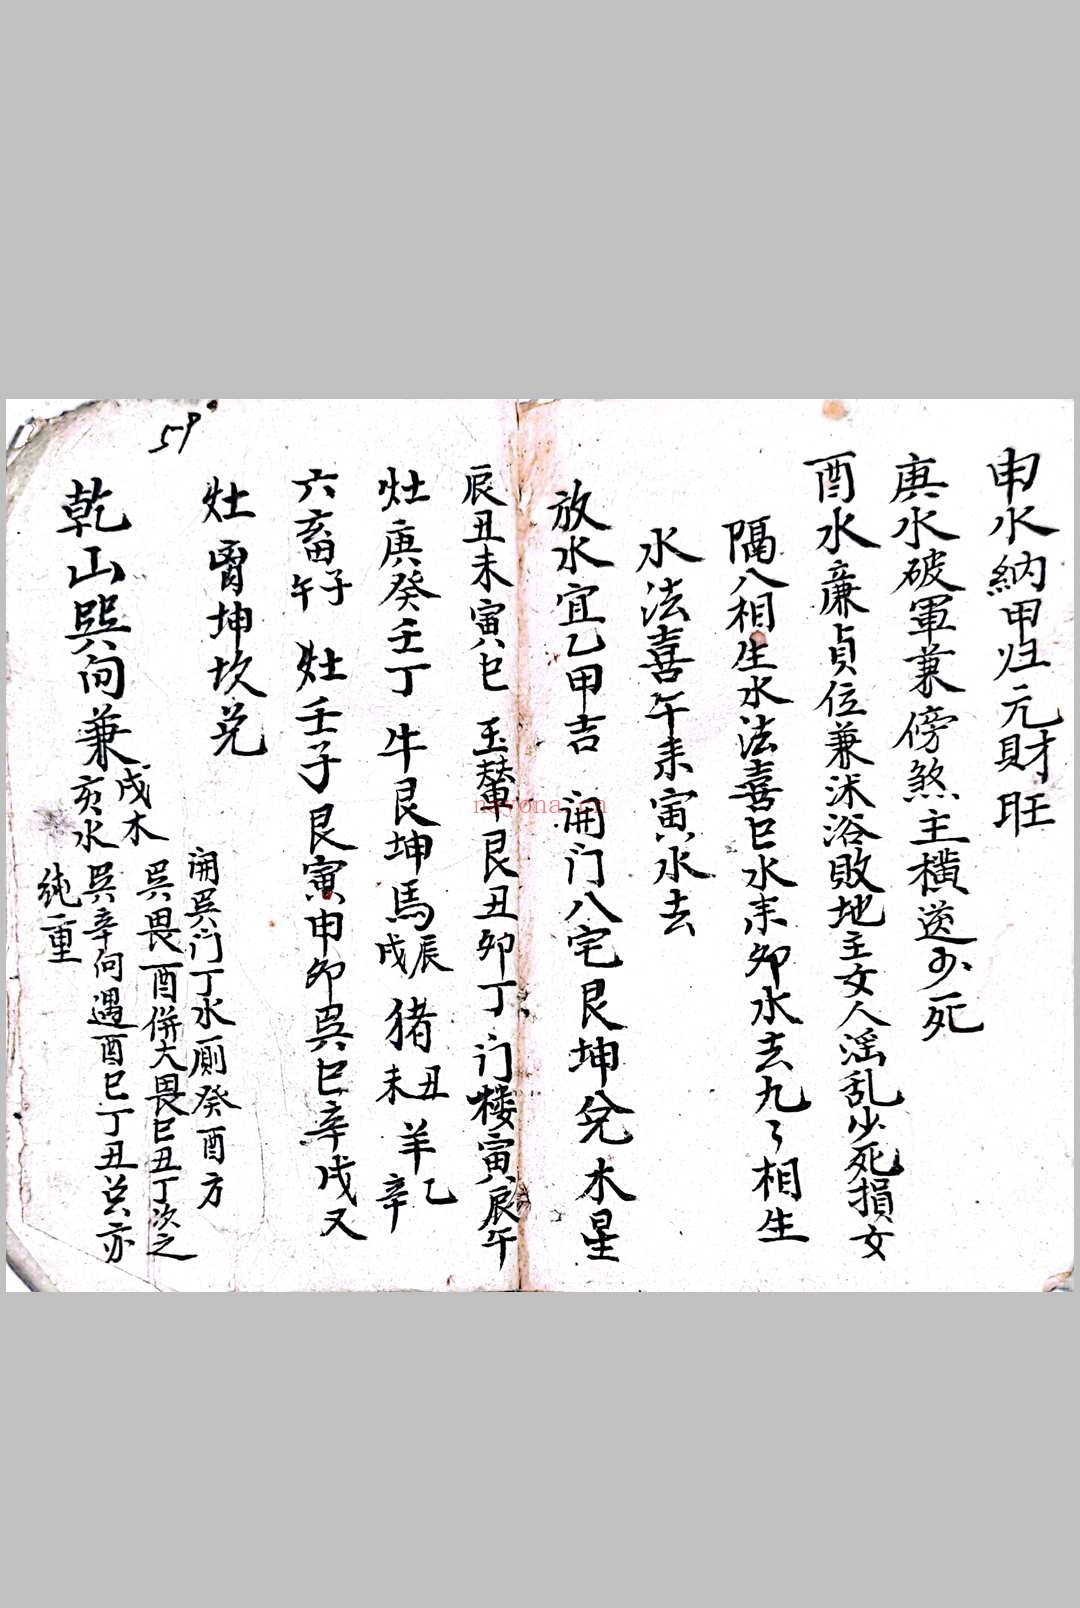 申水納甲归元財旺
庚水破軍兼傍煞主橫逆少死
酉水廉貞位兼沐浴敗地主女人淫乱少死損女
隔八相生水法喜巳水耒卯水去九了相生
水法喜午耒寅水去
放水宜乙甲吉 開门八宅艮坤兌木星
辰丑未寅巳 玉輦艮丑卯丁门楼寅辰午
灶庚癸壬丁 牛艮坤馬辰戌猪丑未羊乙辛
六畜子午 灶壬子艮寅申卯巽巳辛戌又
灶 坤坎兑
開巽门丁水厠癸酉方
乾山巽向兼戌木亥水
巽畏酉併大畏巳丑丁次之
巽辛向遇酉巳丁丑 亦
純重
59
nayona.cn